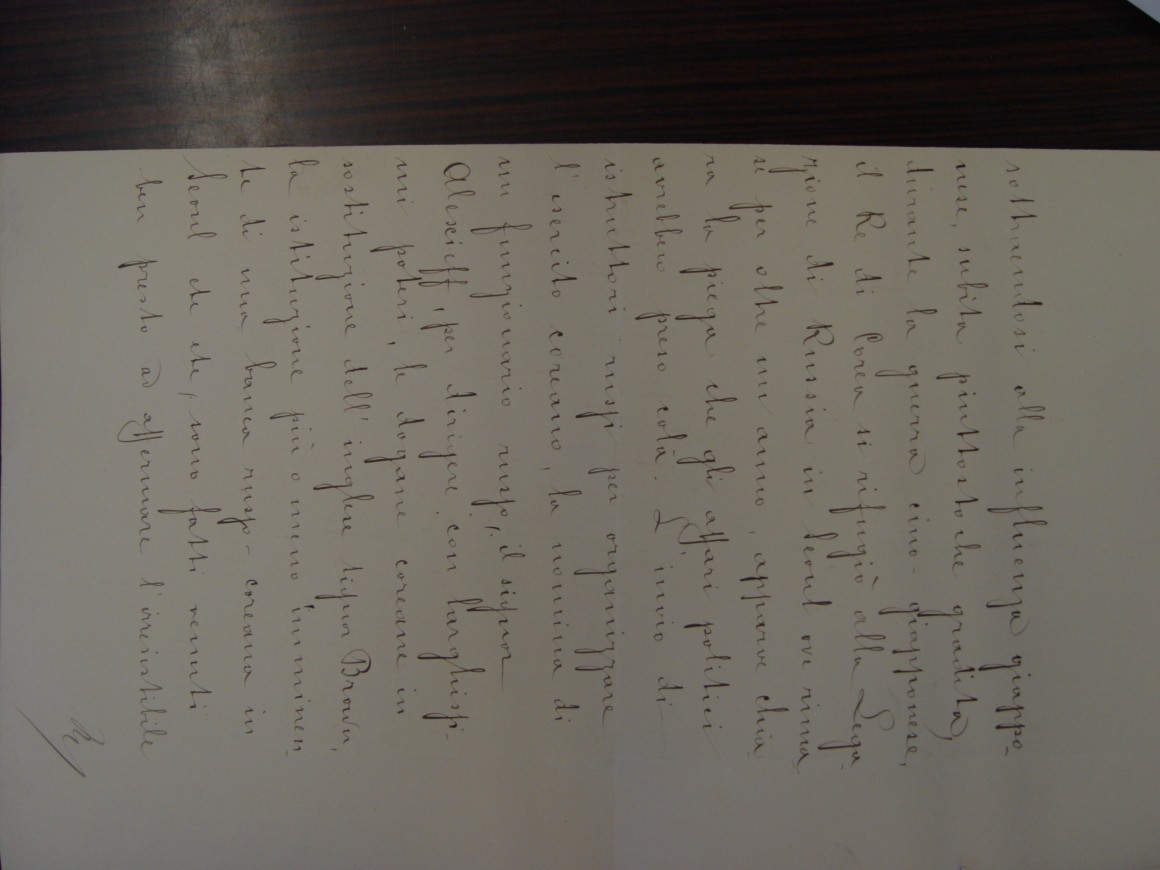 sottraendosi alla influenza giappo-
nese, subita piuttosto che gradita,
durante la guerra cino-giapponese,
il Re di Corea si rifugiò alla Lega-
zione di Russia in Seoul ove rima
se per oltre un anno, apparve chia
ra la piega che gli affari politici
avrebbero preso colà. L'invio di
istruttori russi per organizzare
l'esercito coreano, la nomina di
un funzionario russo, il signor
Alexieff, per dirigere con larghissi-
mi poteri, le dogane coreane in
sostituzione dell'inglese signor Brown,
la istituzione più o meno imminen-
te di una banca russo-coreana in
Seoul etc etc, sono fatti venuti
ben presto ad affermare l'irresistibile